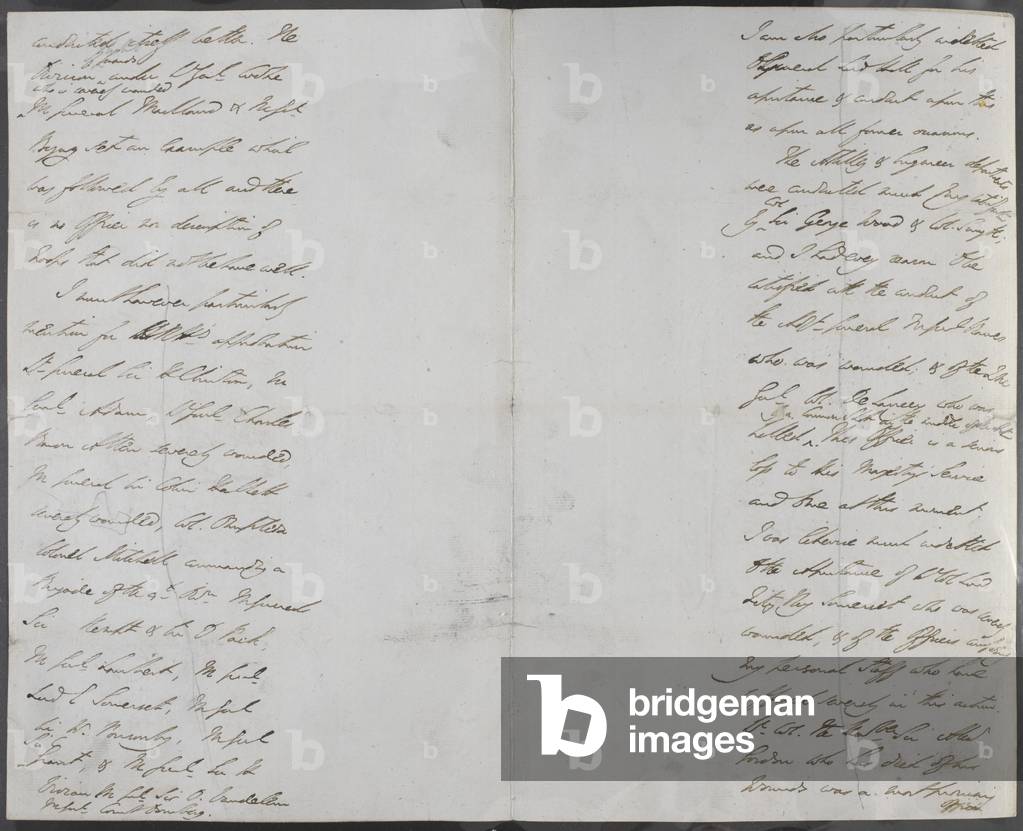 conducted itself better. The
Division of Guards under Lt Genl Cooke
who is severely wounded
M General Maitland & M Genl
Byng set an Example which
was followed by all and there
is no Officer nor description of
Troops that did not behave well.
I must however particularly
mention for HRH's approbation
Lt General Sir H Clinton, M
Genl Adam, Lt Genl Charles
Baron Alten severely wounded,
M General Sir Colin Halkett
severely wounded, Col. Ompteda
Colonel Mitchell commanding a
Brigade of the 4th Divn M General
Sir Kempt & Sir D. Pack,
M Genl Lambert, M Genl
Lord E Somerset, M Genl
Sir W. Ponsonby, M Genl
Sir C Grant, & M Genl Sir H
Vivian M Gl Sir O. Vandeleur
M Genl Count Dornberg.
I am also particularly indebted
to General Lord Hill for his
assistance & conduct upon this
as upon all former occasions.
The Artillery & Engineer departments
were conducted much to my satisfaction
by Col Sir George Wood & Col. Smyth.
and I had every reason to be
satisfied with the conduct of
the Adjt General M Genl Barnes
who was wounded; & of the QM
Genl Col. De Lancey who was
killed by a Cannon Shot in the middle of the action
This Officer is a serious
loss to His Majesty's Service
and to me at this moment.
I was likewise much indebted
to the assistance of Lt Col Lord
Fitz Roy Somerset who was severely
wounded, & of the Officers composing
my personal Staff who have
suffered severely in this action.
Lt. Col. the Honble Sir Alexr
Gordon who has died of his
Wounds was a most promising
Officer
bridgeman
images